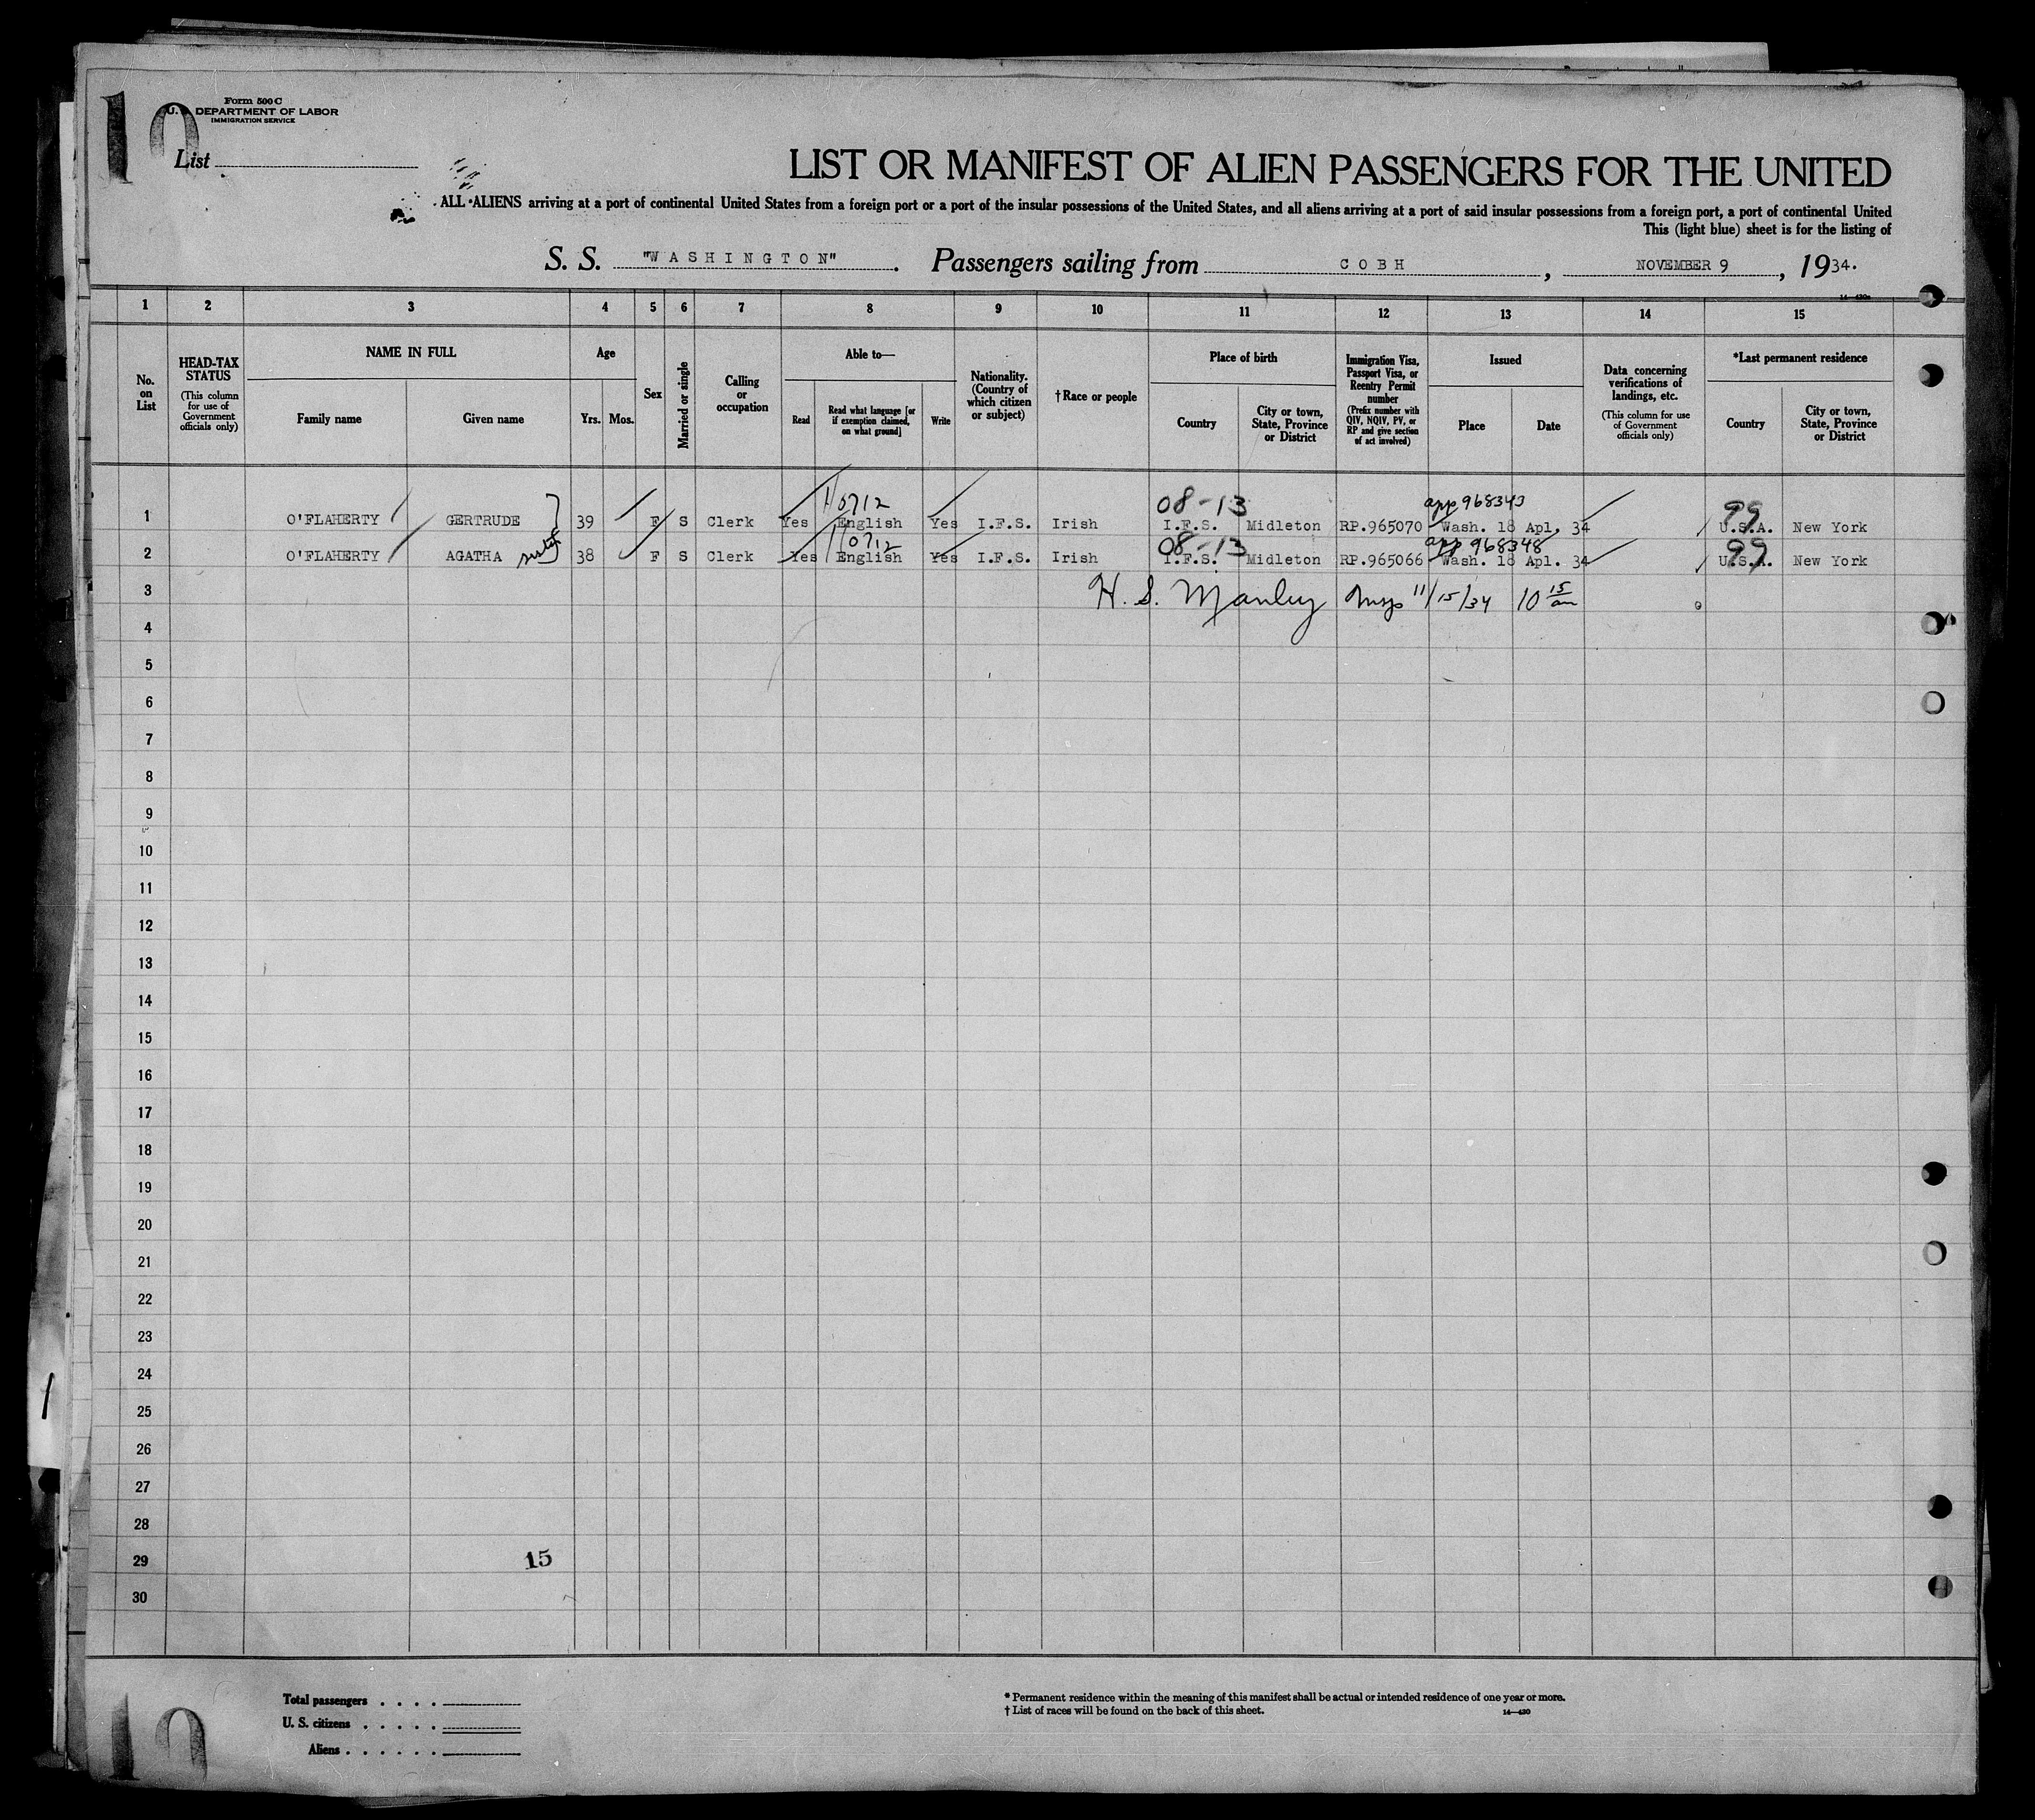 10
Form 500 C
U. S. DEPARTMENT OF LABOR
IMMIGRATION SERVICE
List
LIST OR MANIFEST OF ALIEN PASSENGERS FOR THE UNITED
ALL ALIENS arriving at a port of continental United States from a foreign port or a port of the insular possessions of the United States, and all aliens arriving at a port of said insular possessions from a foreign port, a port of continental United
This (light blue) sheet is for the listing of
S. S. "WASHINGTON". Passengers sailing from COBH, NOVEMBER 9, 1934.
1 2 3 4 5 6 7 8 9 10 11 12 13 14 15
No. on List
HEAD-TAX STATUS (This column for use of Government officials only)
NAME IN FULL
Family name Given name
Age
Yrs. Mos.
Sex
Married or single
Calling or occupation
Able to—
Read Read what language [or if exemption claimed, on what ground] Write
Nationality. (Country of which citizen or subject)
†Race or people
Place of birth
Country City or town, State, Province or District
Immigration Visa, Passport Visa, or Reentry Permit number (Prefix number with QIV, NQIV, PV, or RP and give section of act involved)
Issued
Place Date
Data concerning verifications of landings, etc. (This column for use of Government officials only)
*Last permanent residence
Country City or town, State, Province or District
110712 08-13 app 968343 99
1 O'FLAHERTY GERTRUDE 39 F S Clerk Yes English Yes I.F.S. Irish I.F.S. Midleton RP.965070 Wash. 18 Apl. 34 U.S.A. New York
110712 08-13 app 968348 99
2 O'FLAHERTY AGATHA 38 F S Clerk Yes English Yes I.F.S. Irish I.F.S. Midleton RP.965066 Wash. 18 Apl. 34 U.S.A. New York
3 H. S. Manley 11/15/34 10 15 am
4
5
6
7
8
9
10
11
12
13
14
15
16
17
18
19
20
21
22
23
24
25
26
27
28
29 15
30
Total passengers . . . .
U. S. citizens . . . . .
Aliens . . . . . .
* Permanent residence within the meaning of this manifest shall be actual or intended residence of one year or more.
† List of races will be found on the back of this sheet. 14—430
10